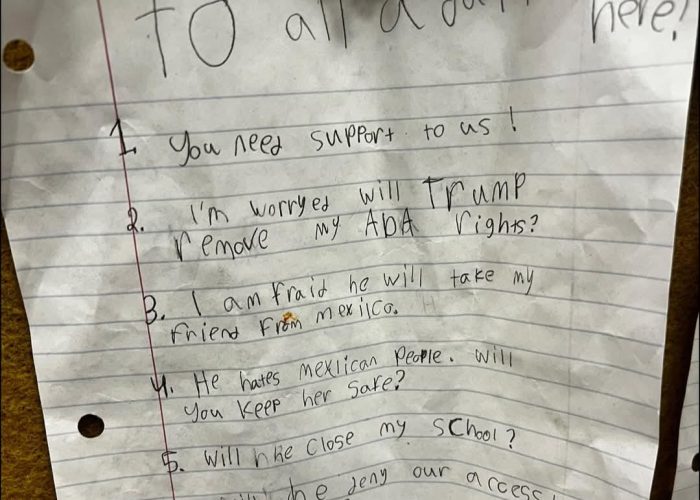 To all adults here!
1. You need support to us!
2. I'm worryed will Trump
remove my ADA rights?
3. I am fraid he will take my
friend from mexilco.
4. He hates mexlican people. Will
you keep her safe?
5. Will hhe close my school?
he deny our access